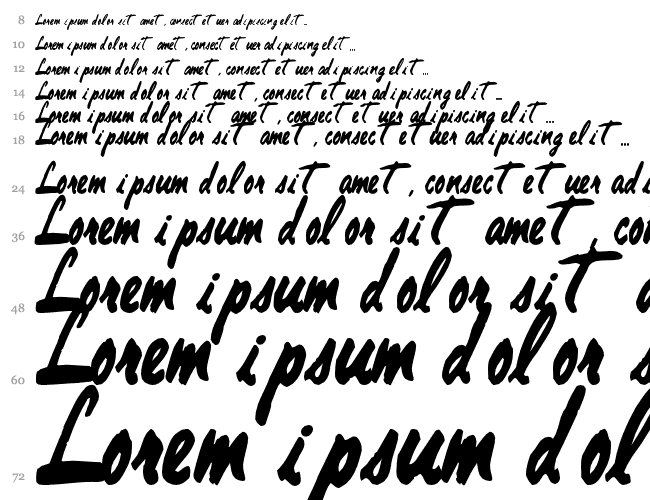 8 Lorem ipsum dolor sit amet, consect et uer adipiscing elit ...
10 Lorem ipsum dolor sit amet, consect et uer adipiscing elit ...
12 Lorem ipsum dolor sit amet, consect et uer adipiscing elit ...
14 Lorem ipsum dolor sit amet, consect et uer adipiscing elit ...
16 Lorem ipsum dolor sit amet, consect et uer adipiscing elit ...
18 Lorem ipsum dolor sit amet, consect et uer adipiscing elit ...
24 Lorem ipsum dolor sit amet, consect et uer adi
36 Lorem ipsum dolor sit amet, con
48 Lorem ipsum dolor sit a
60 Lorem ipsum dolor s
72 Lorem ipsum dol